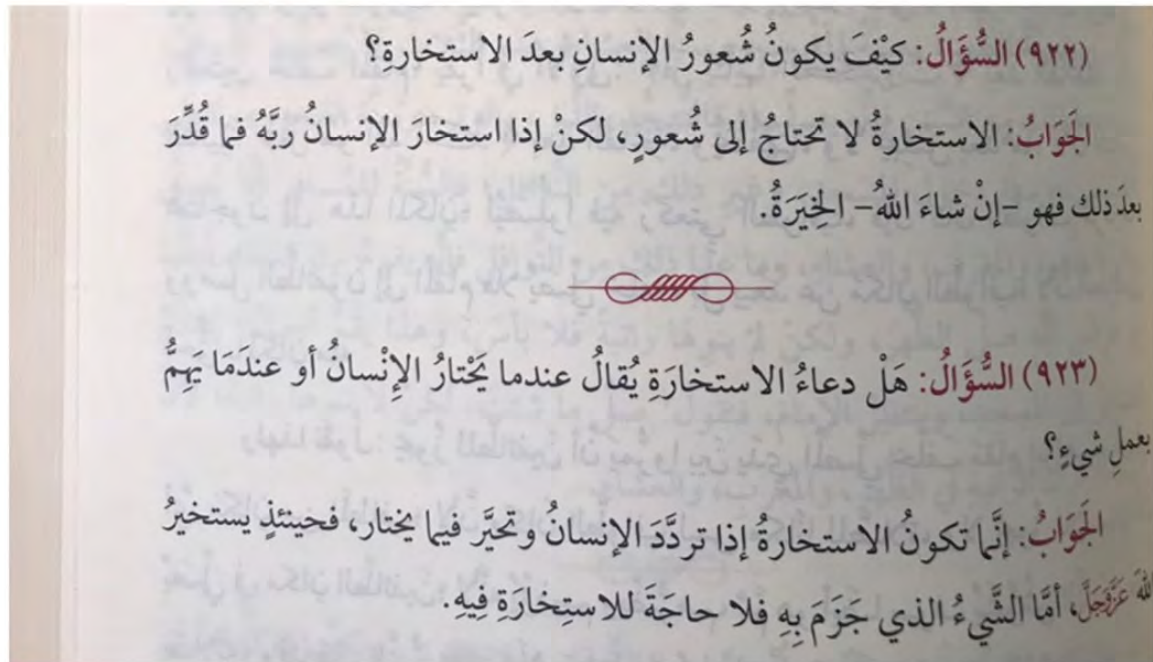 (٩٢٢) السُّؤَالُ: كيْفَ يكونُ شُعورُ الإنسانِ بعدَ الاستخارةِ؟
الجَوَابُ: الاستخارةُ لا تحتاجُ إلى شُعورٍ، لكنْ إذا استخارَ الإنسانُ ربَّهُ فما قُدِّرَ
بعدَ ذلك فهو -إنْ شاءَ اللهُ- الخِيَرَةُ.
(٩٢٣) السُّؤَالُ: هَلْ دعاءُ الاستخارَةِ يُقالُ عندما يَخْتارُ الإنْسانُ أو عندَمَا يَهِمُّ
بعملِ شيءٍ؟
الجَوَابُ: إنَّما تكونُ الاستخارةُ إذا تردَّدَ الإنسانُ وتحيَّر فيما يختار، فحينئذٍ يستخيرُ
اللهَ عَزَّوَجَلَّ، أمَّا الشَّيءُ الذي جَزَمَ بِهِ فلا حاجَةَ للاستِخارَةِ فِيهِ.